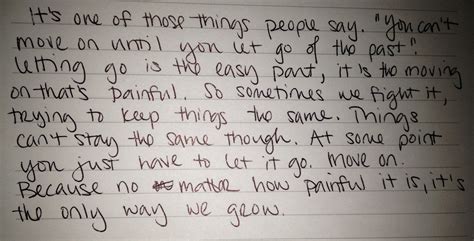 It's one of those things people say. "You can't
move on until you let go of the past".
Letting go is the easy part, it's the moving
on that's painful. So sometimes we fight it,
trying to keep things the same. Things
can't stay the same though. At some point
you just have to let it go. Move on.
Because no matter how painful it is, it's
the only way we grow.